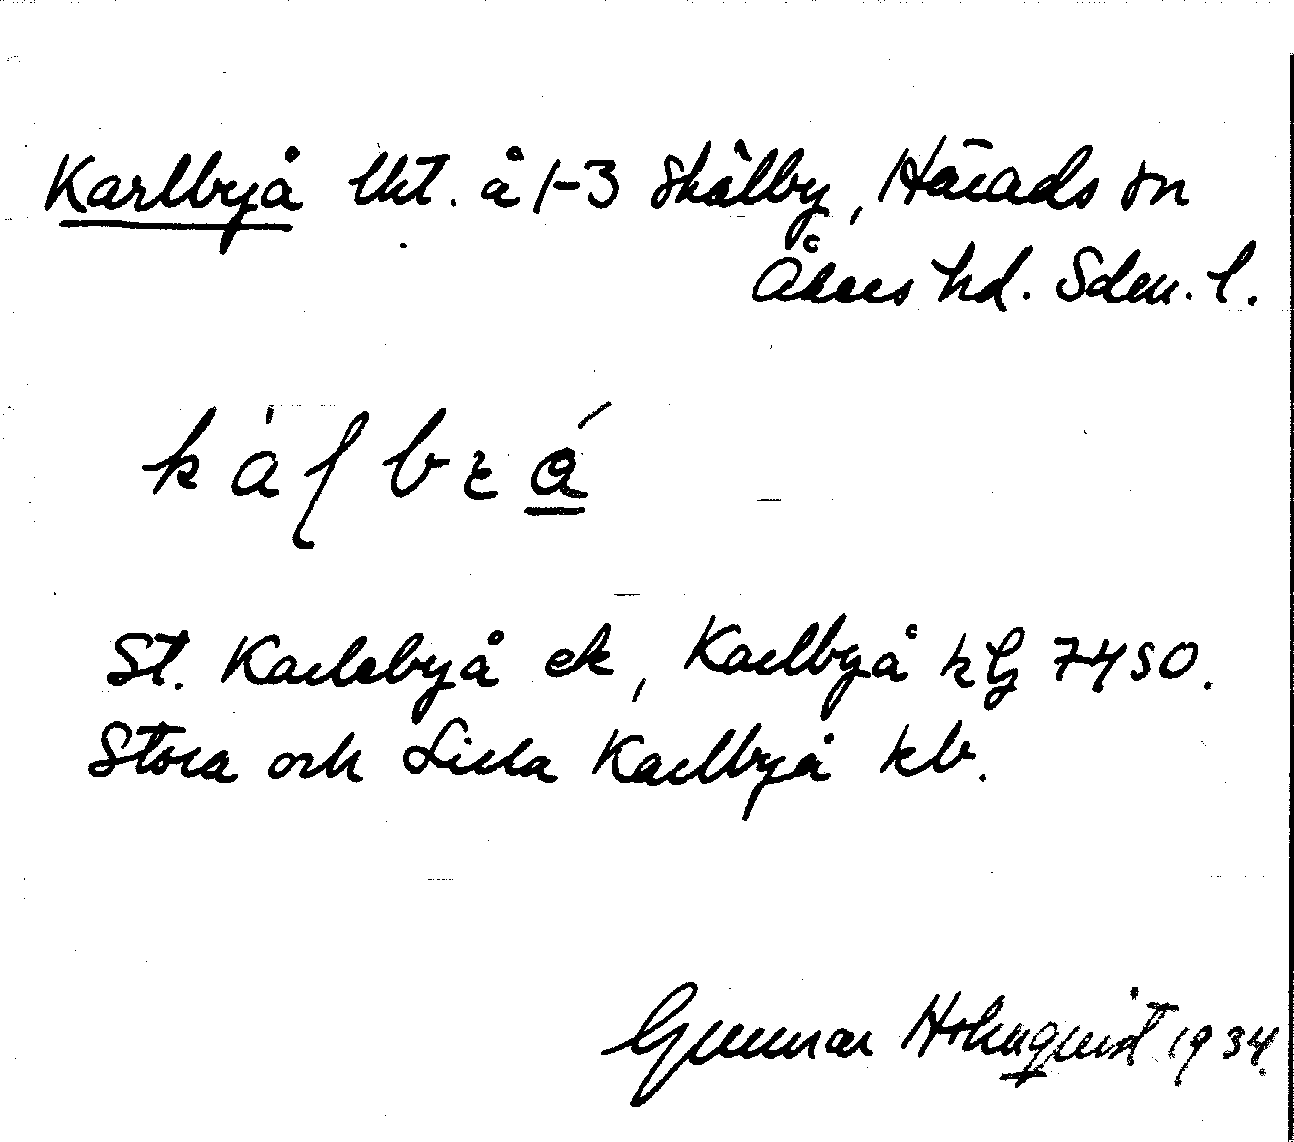 Karlbyå lht. å 1-3 Skälby, Härads sn
Åkers hd. Sdm. l.
St. Karlebyå ek, Karlbyå hfg 7450.
Stora och Lilla Karlbyå kb.
Gunnar Holmquist 1934.